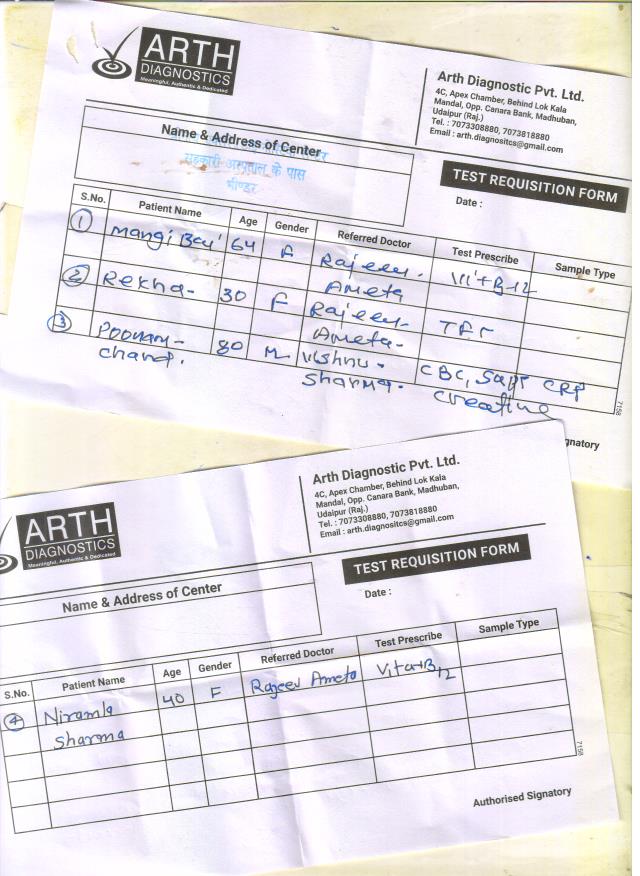 ARTH
DIAGNOSTICS
Meaningful, Authentic & Dedicated
Arth Diagnostic Pvt. Ltd.
4C, Apex Chamber, Behind Lok Kala
Mandal, Opp. Canara Bank, Madhuban,
Udaipur (Raj.)
Tel. : 7073308880, 7073818880
Email : arth.diagnositcs@gmail.com
Name & Address of Center
सरकारी अस्पताल के पास
भीण्डर
TEST REQUISITION FORM
Date :
S.No. Patient Name Age Gender Referred Doctor Test Prescribe Sample Type
1 Mangi Bai 64 F Rajeev Vit B-12
Ameta
2 Rekha- 30 F Rajeev- TFT
Ameta-
3 Poonam- 80 M Vishnu- CBC, CRP
chand. Sharma-
7158
gnatory
ARTH
DIAGNOSTICS
Meaningful, Authentic & Dedicated
Arth Diagnostic Pvt. Ltd.
4C, Apex Chamber, Behind Lok Kala
Mandal, Opp. Canara Bank, Madhuban,
Udaipur (Raj.)
Tel. : 7073308880, 7073818880
Email : arth.diagnositcs@gmail.com
Name & Address of Center
TEST REQUISITION FORM
Date :
S.No. Patient Name Age Gender Referred Doctor Test Prescribe Sample Type
4 Niramla 40 F Rajeev Ameta B12
Sharma
7158
Authorised Signatory